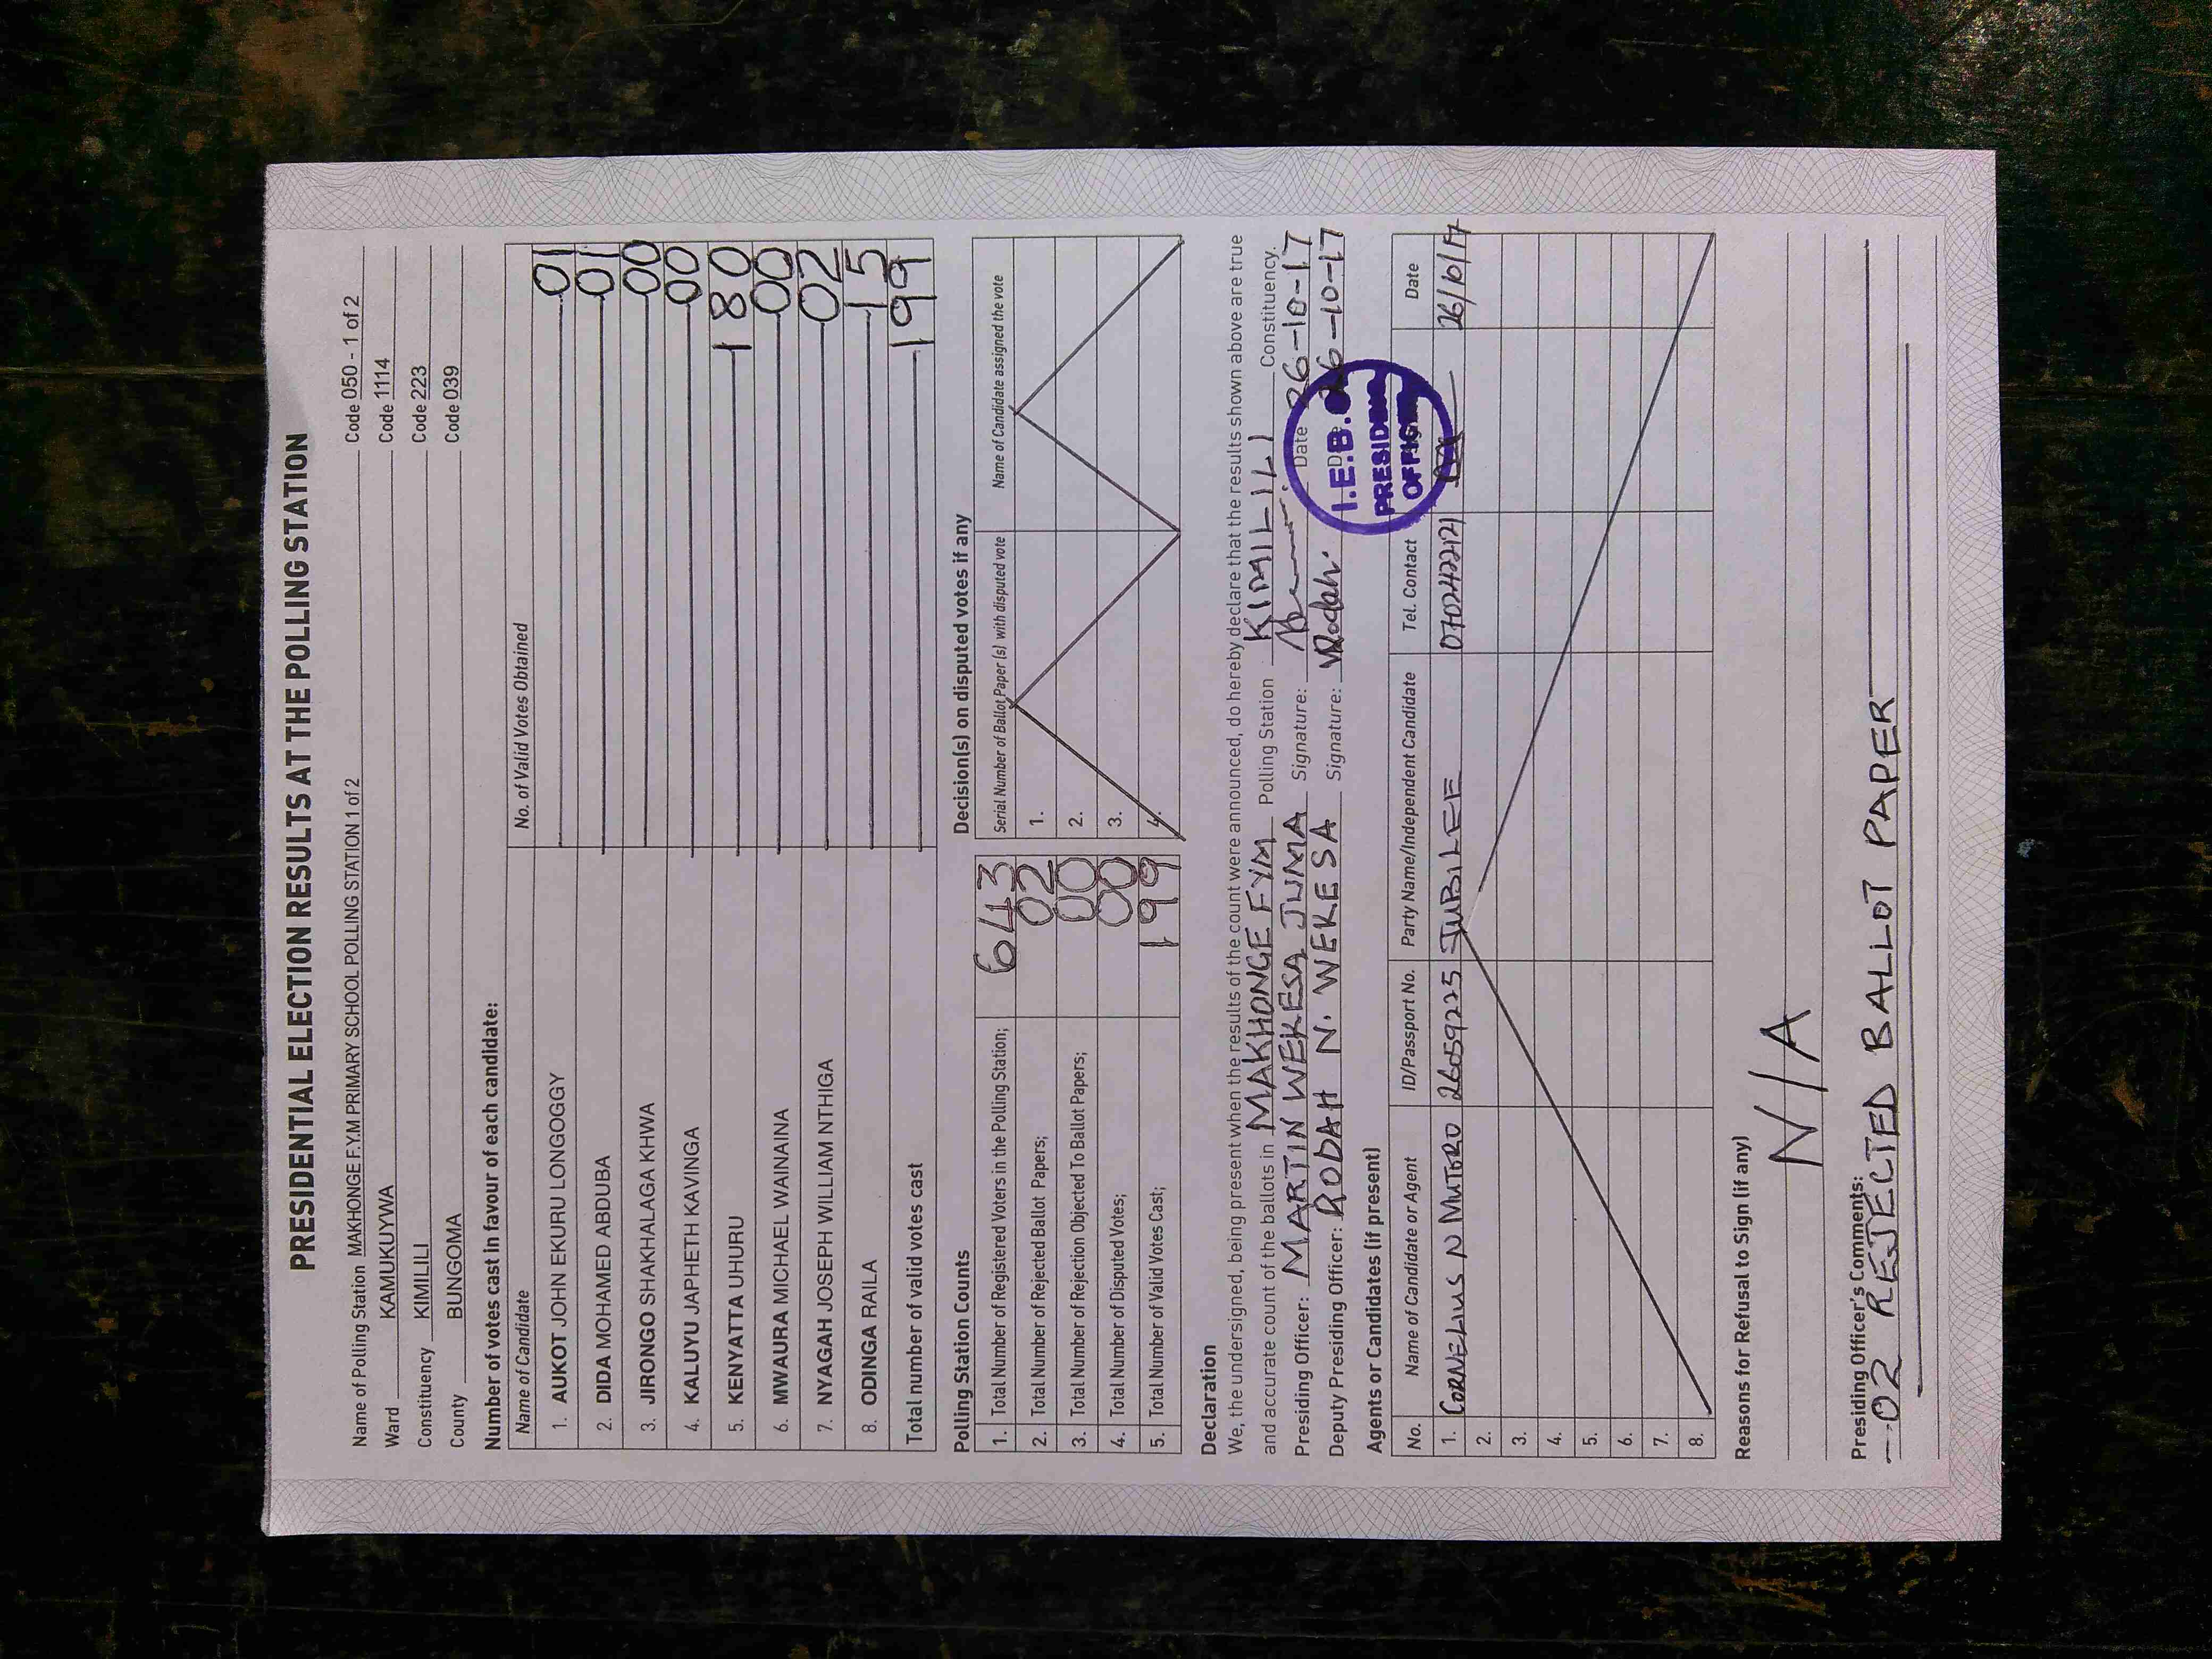 PRESIDENTIAL ELECTION RESULTS AT THE POLLING STATION
Name of Polling Station MAKHONGE F.Y.M PRIMARY SCHOOL POLLING STATION 1 of 2 Code 050 - 1 of 2
Ward KAMUKUYWA Code 1114
Constituency KIMILILI Code 223
County BUNGOMA Code 039
Number of votes cast in favour of each candidate:
Name of Candidate No. of Valid Votes Obtained
1. AUKOT JOHN EKURU LONGOGGY 01
2. DIDA MOHAMED ABDUBA 01
3. JIRONGO SHAKHALAGA KHWA 00
4. KALUYU JAPHETH KAVINGA 00
5. KENYATTA UHURU 180
6. MWAURA MICHAEL WAINAINA 00
7. NYAGAH JOSEPH WILLIAM NTHIGA 02
8. ODINGA RAILA 15
Total number of valid votes cast 199
Polling Station Counts
1. Total Number of Registered Voters in the Polling Station; 643
2. Total Number of Rejected Ballot Papers; 02
3. Total Number of Rejection Objected To Ballot Papers; 00
4. Total Number of Disputed Votes; 00
5. Total Number of Valid Votes Cast; 199
Decision(s) on disputed votes if any
Serial Number of Ballot Paper (s) with disputed vote Name of Candidate assigned the vote
1.
2.
3.
4.
Declaration
We, the undersigned, being present when the results of the count were announced, do hereby declare that the results shown above are true
and accurate count of the ballots in MAKHONGE FYM Polling Station KIMILILI Constituency.
Presiding Officer: MARTIN WEKESA JUMA Signature: Date 26-10-17
Deputy Presiding Officer: RODAH N. WEKESA Signature: Rodah 26-10-17
I.E.B.C
PRESIDING
OFFICER
Agents or Candidates (if present)
No. Name of Candidate or Agent ID/Passport No. Party Name/Independent Candidate Tel. Contact Date
1. CORNELIUS N MUTORO 26059225 JUBILEE 0702422121 26/10/17
2.
3.
4.
5.
6.
7.
8.
Reasons for Refusal to Sign (if any)
N/A
Presiding Officer's Comments:
02 REJECTED BALLOT PAPER